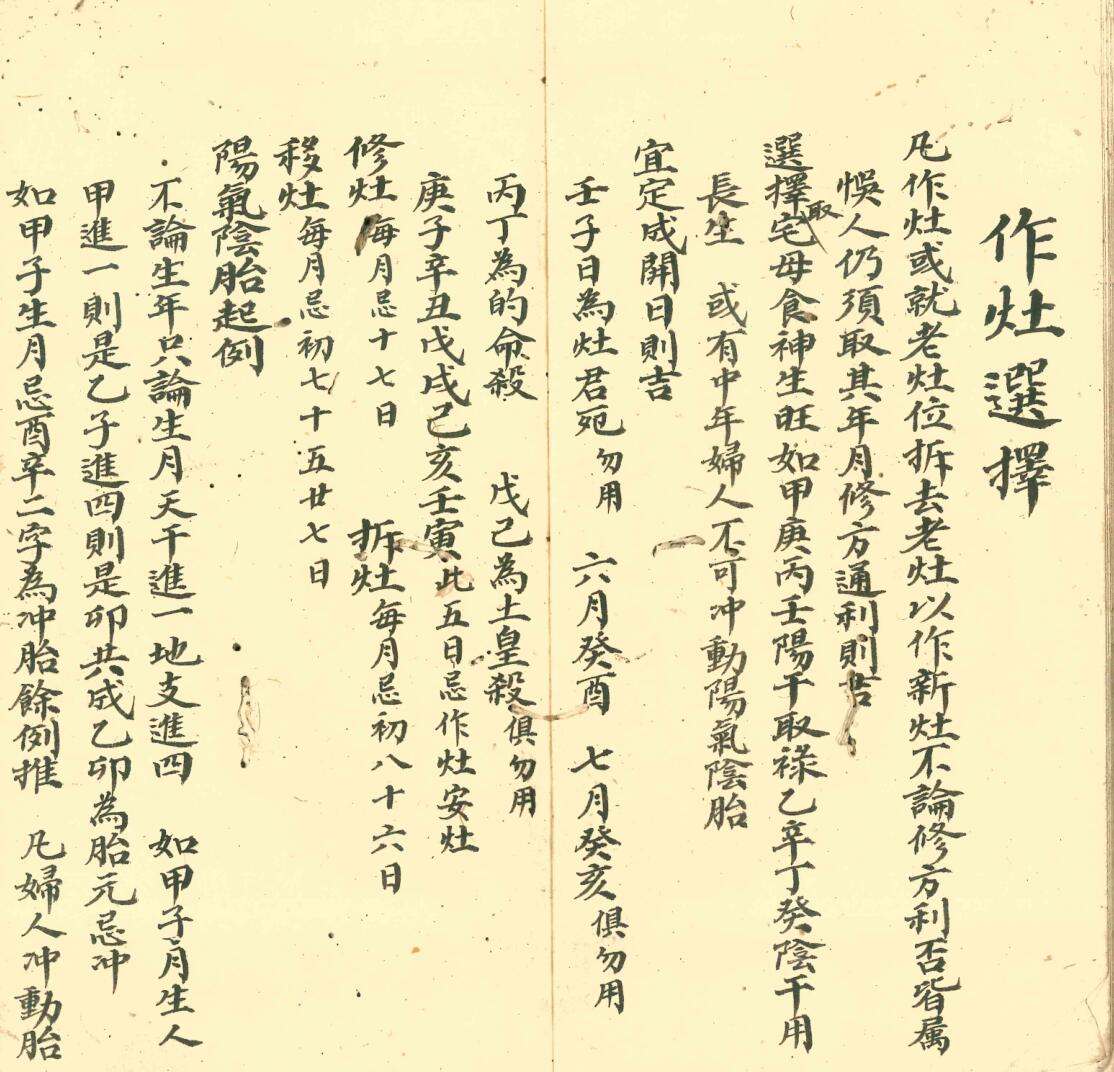 作灶選擇
凡作灶或就老灶位拆去老灶以作新灶不論修方利否皆属
悞人仍須取其年月修方通利則吉
選擇取宅母食神生旺如甲庚丙壬陽干取祿乙辛丁癸陰干用
長生 或有中年婦人不可冲動陽氣陰胎
宜定成開日則吉
壬子日為灶君死勿用 六月癸酉 七月癸亥俱勿用
丙丁為的命殺 戊己為土皇殺俱勿用
庚子辛丑戊戌己亥壬寅此五日忌作灶安灶
修灶每月忌十七日 拆灶每月忌初八十六日
移灶每月忌初七十五廿七日
陽氣陰胎起例
不論生年只論生月天干進一地支進四 如甲子月生人
甲進一則是乙子進四則是卯共成乙卯為胎元忌冲
如甲子生月忌酉辛二字為冲胎餘例推 凡婦人冲動胎